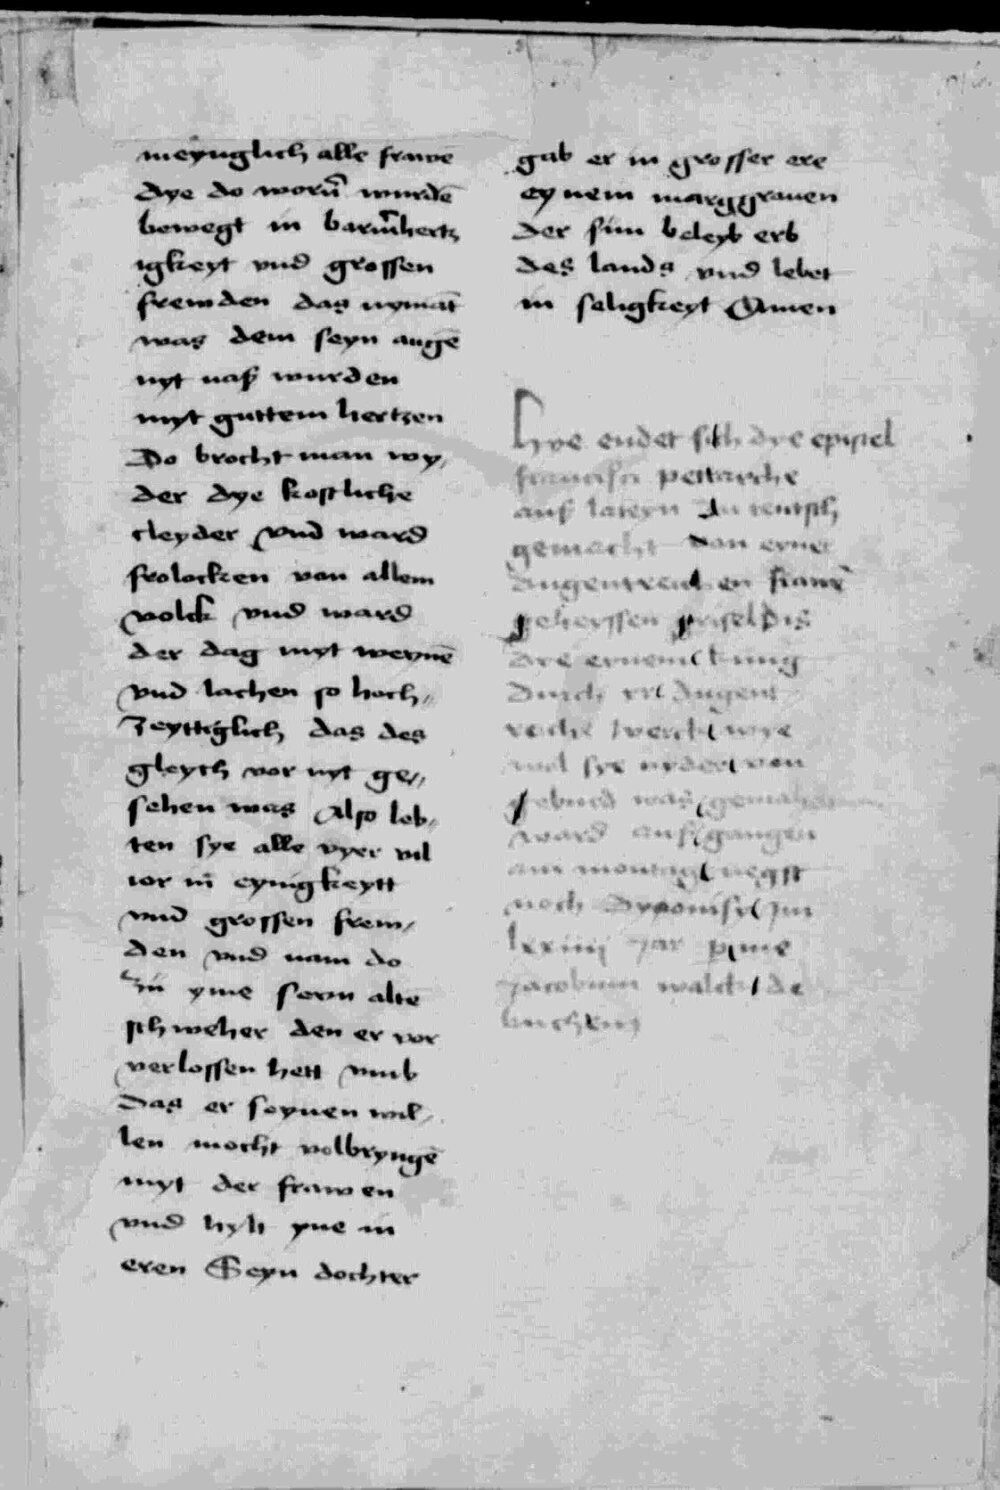 meynglich alle frawē
dye do worn̄ wurdē
bewegt in barm̄hertz
igkeyt vnd grossen
frewden das nymāt
was dem seyn augē
nyt naß wurden
myt guttem hertzen
Do brocht man wy,
der dye kostlichē
cleyder vnd ward
frolocken von allem
volck vnd ward
der dag myt weynē
vnd lachen so hoch,,
zeyttiglich das des
gleych vor nyt ge,,
sehen was Also leb,
ten sye alle vyer vil
ior in eynigkeytt
vnd grossen frew,
den vnd nam do
zu yme seyn altē
schweher den er vor
verlossen hett vmb
das er seynen wil,
len mocht volbryngē
myt der frawen
vnd hylt yne in
eren Seyn dochter
gab er in grosser ere
eynem marggrauen
der sun beleyb erb
des lands vnd lebet
in seligkeyt Amen
Hye endet sich dye epistel
francisci petrarche
auß lateyn zu teutsch
gemacht von eyner
dugentreichen frawē
geheyssen griseldis
dye
durch ir dugent
reiche werck wye
wol sye nyder von
geburd was
ward auß gangen
am montag negst
noch dyonisy Im
lxiiij Jar p me
Jacobum walck de